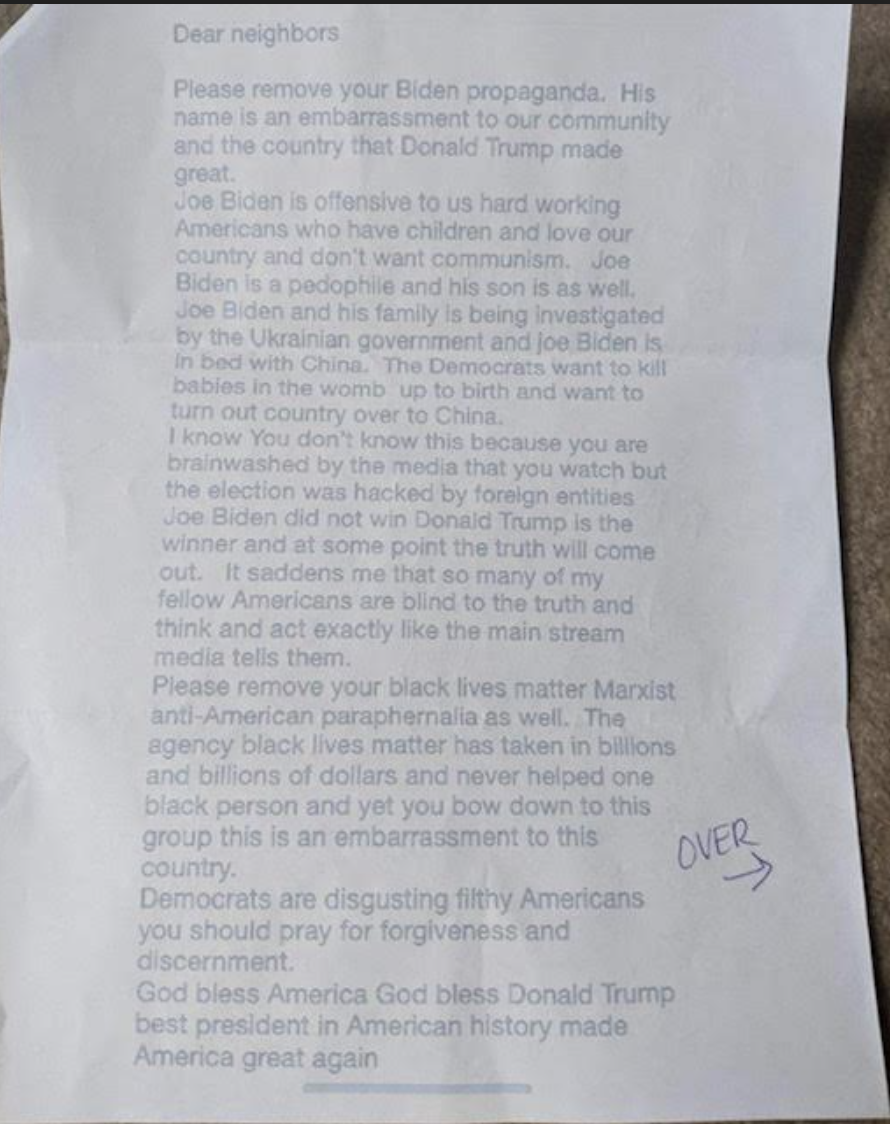 Dear neighbors
Please remove your Biden propaganda.  His
name is an embarrassment to our community
and the country that Donald Trump made
great.
Joe Biden is offensive to us hard working
Americans who have children and love our
country and don't want communism.   Joe
Biden is a pedophile and his son is as well.
Joe Biden and his family is being investigated
by the Ukrainian government and joe Biden is
in bed with China.  The Democrats want to kill
babies in the womb  up to birth and want to
turn out country over to China.
I know You don't know this because you are
brainwashed by the media that you watch but
the election was hacked by foreign entities
Joe Biden did not win Donald Trump is the
winner and at some point the truth will come
out.   It saddens me that so many of my
fellow Americans are blind to the truth and
think and act exactly like the main stream
media tells them.
Please remove your black lives matter Marxist
anti-American paraphernalia as well.  The
agency black lives matter has taken in billions
and billions of dollars and never helped one
black person and yet you bow down to this
group this is an embarrassment to this
country.
OVER →
Democrats are disgusting filthy Americans
you should pray for forgiveness and
discernment.
God bless America God bless Donald Trump
best president in American history made
America great again